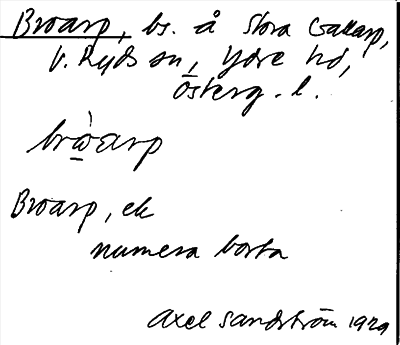 Broarp, bs. å Stora Gallarp,
V. Ryds sn, Ydre hd,
Österg. l.
bròarp
Broarp, ek
numera borta
Axel Sandström 1929